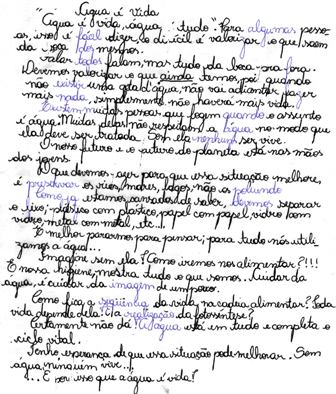 "Água é Vida
"Água é vida, água, é tudo". Para algumas pesso-
as, isso é fácil dizer, o difícil é valorizar o que saem
da voz dos mesmos.
Falar todos falam, mas tudo da boca pra fora.
Devemos valorizar o que ainda temos, pois quando
não existir uma gota d'água, não vai adiantar fazer
mais nada, simplesmente não haverá mais vida.
Existem muitas pessoas que fogem quando o assunto
é água. Muitas delas não respeitam a água no modo que
ela deve ser tratada. Sem ela nenhum ser vive.
O nosso futuro e o futuro do planeta está nas mãos
dos jovens.
O que devemos fazer para que essa situação melhore,
é preservar os rios, mares, lagos, não os poluindo
Como já estamos cansados de saber, devemos separar
o lixo; plástico com plástico, papel com papel, vidro com
vidro, metal com metal, etc...
É melhor pararmos para pensar; para tudo nós utili-
zamos a água...
Imaginar sem ela? Como iremos nos alimentar?!!!
E nossa higiene, mostra tudo o que somos. Cuidar da
água, é cuidar da imagem de um povo.
Como fica a sequência da vida, na cadeia alimentar? Toda
vida depende dela! E a realização da fotossíntese?
Certamente não dá! A água está em tudo e completa o
ciclo vital.
Tenho esperança de que essa situação pode melhorar. Sem
água, ninguém vive...!
... É por isso que a água é vida!